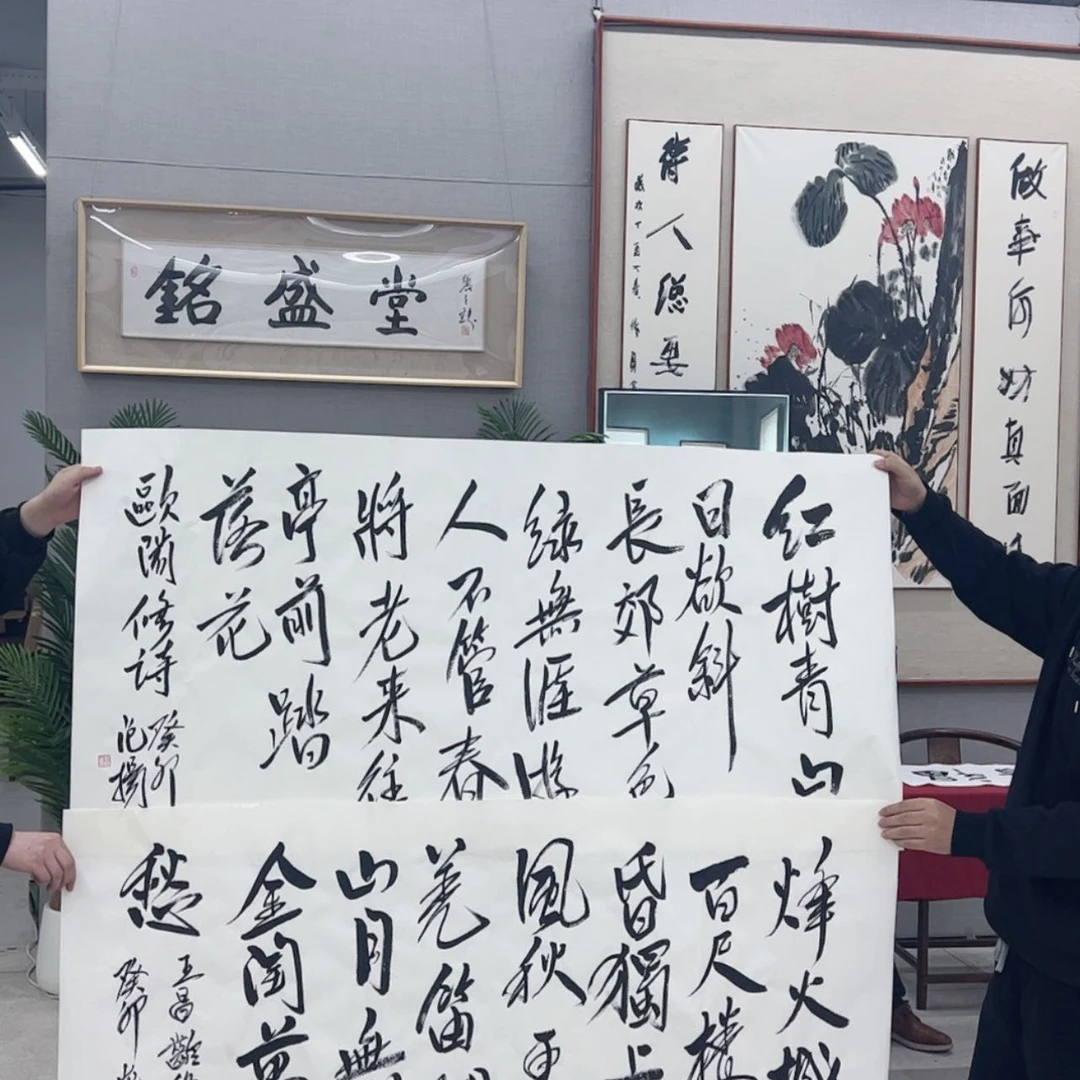 銘盛堂
做事何妨真面
待人總要
红樹青山
日欲斜
長郊草色
緑無涯游
人不管春
將老来往
亭前踏
落花
歐陽修詩
癸卯
烽火城
百尺樓
昏獨上
風秋更
羌笛
山月無
金閨萬
愁
王昌齡
癸卯